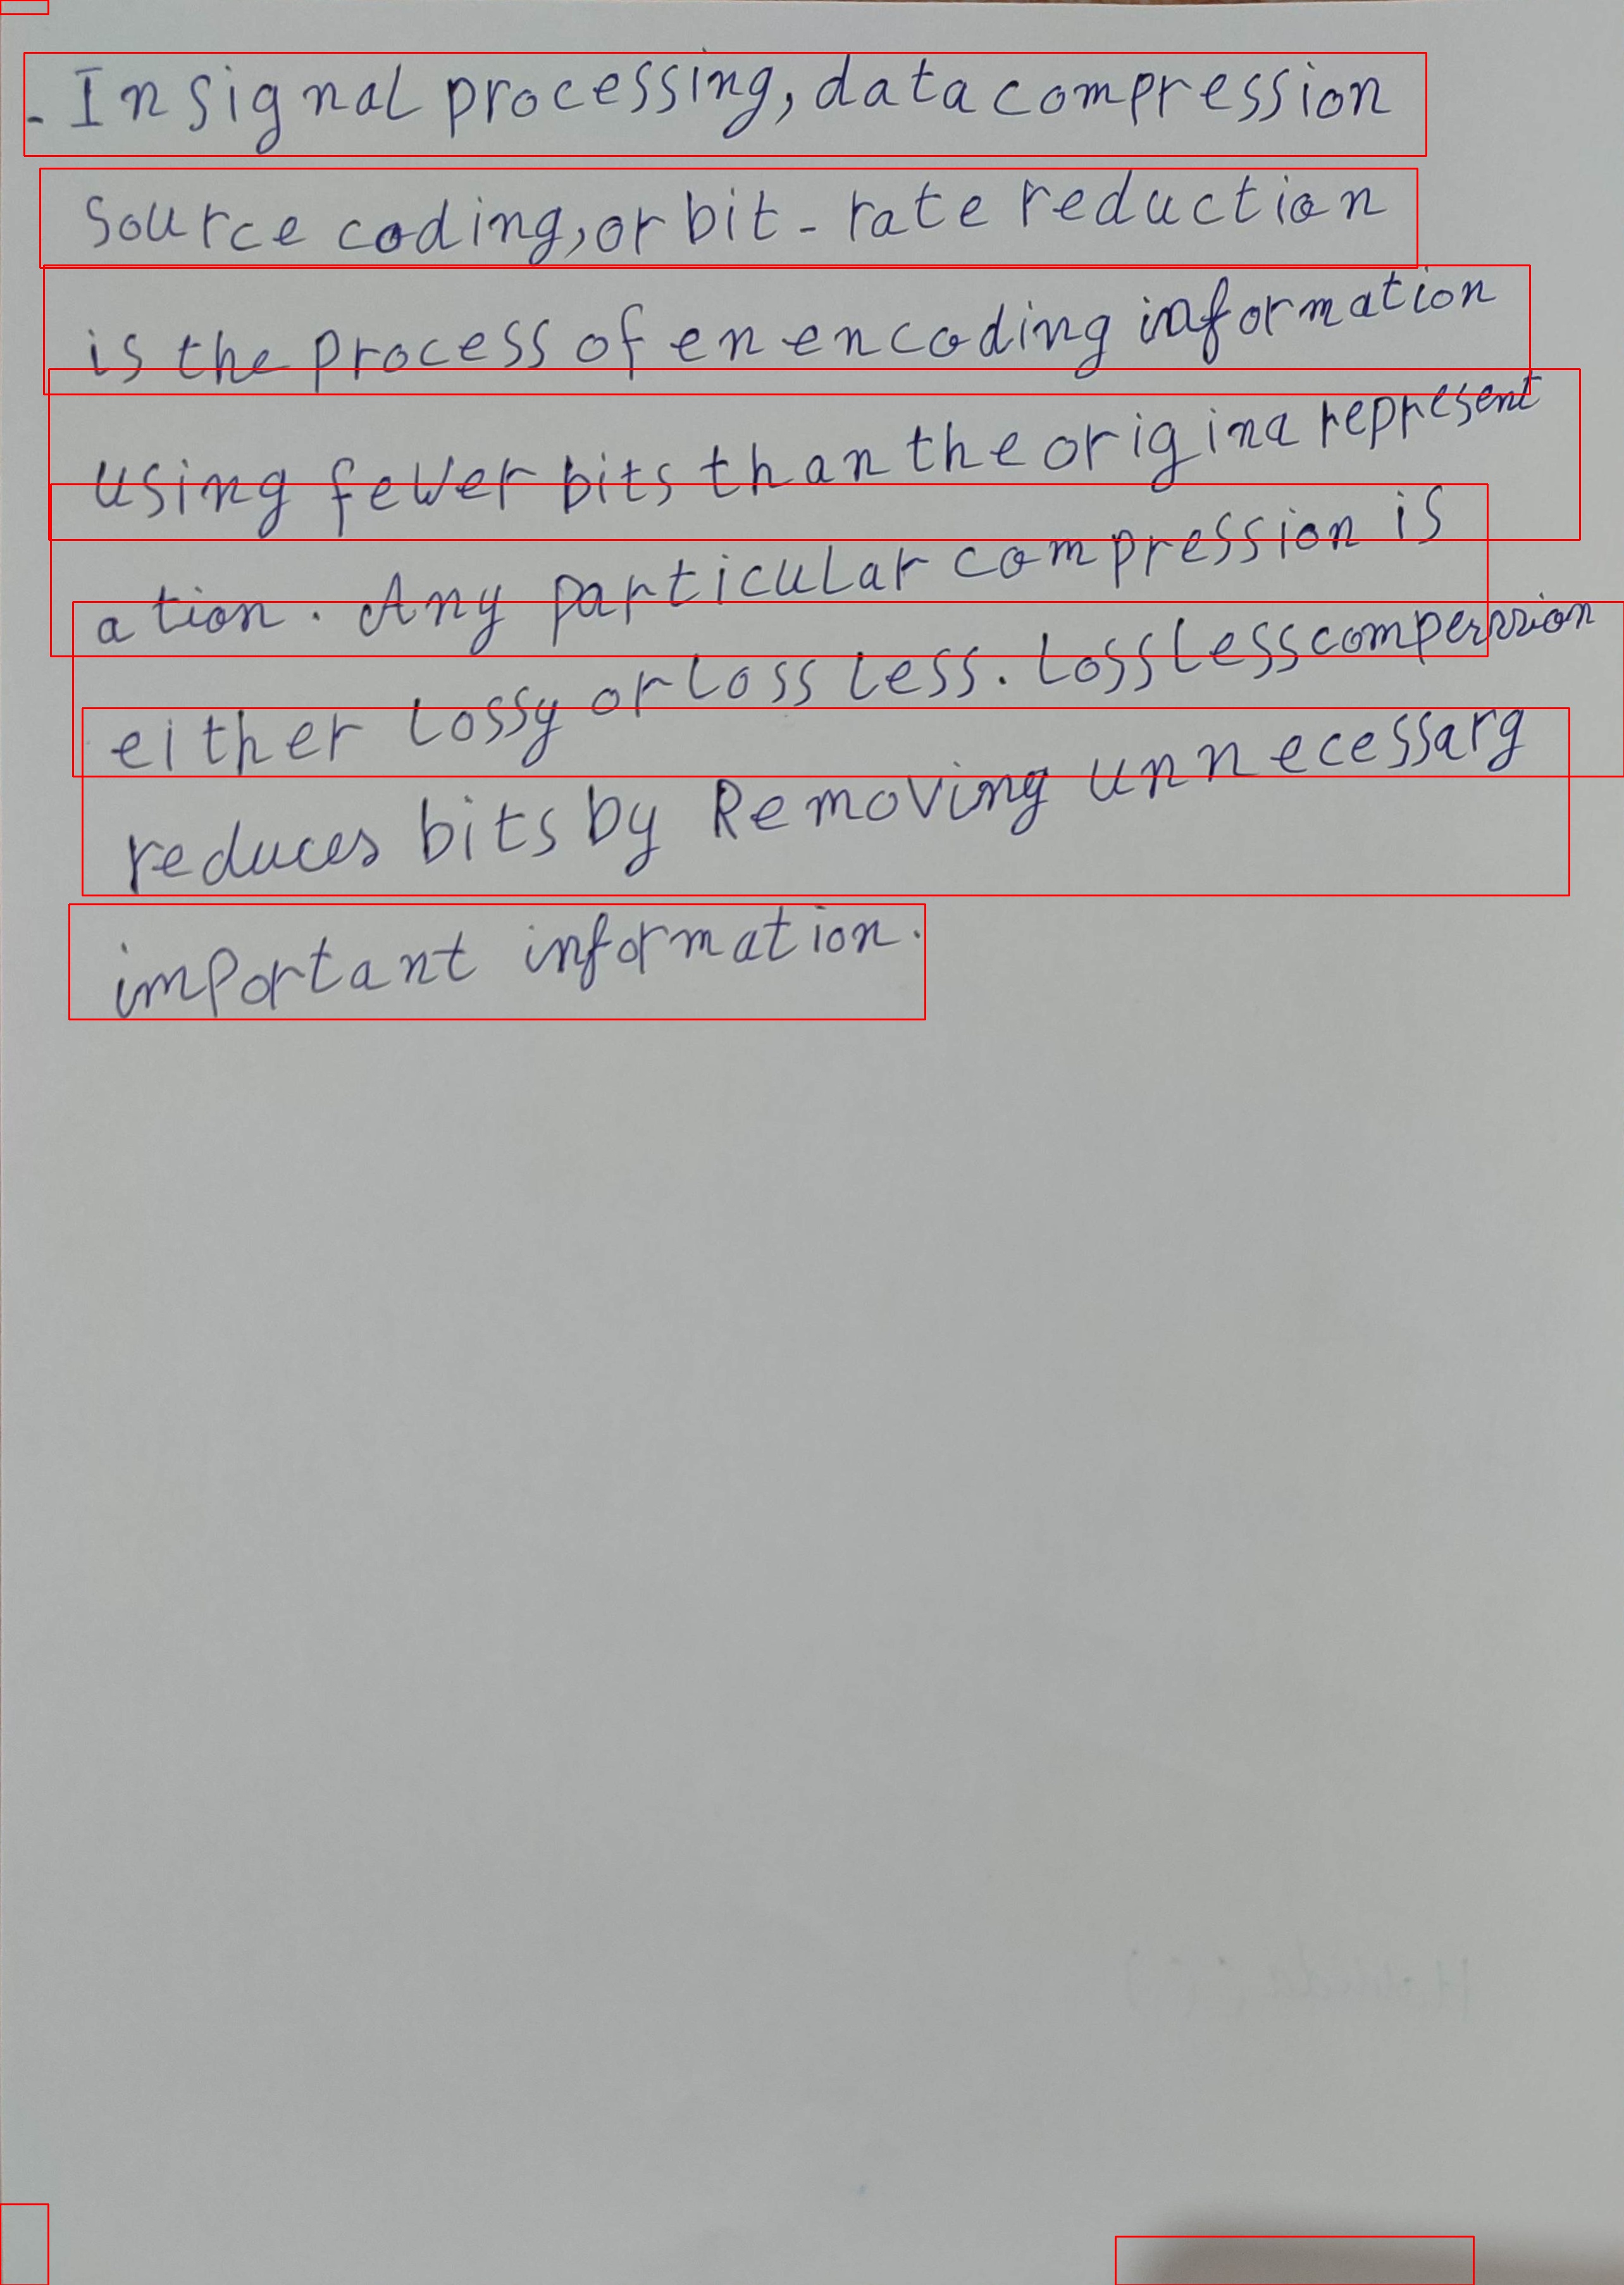 - In signal processing, data compression
Source coding, or bit - rate reduction
is the process of en encoding information
using fewer bits than the origina represent
ation. Any particular compression is
either lossy or loss less. loss less comperssion
reduces bits by Removing unnecessarg
important information.